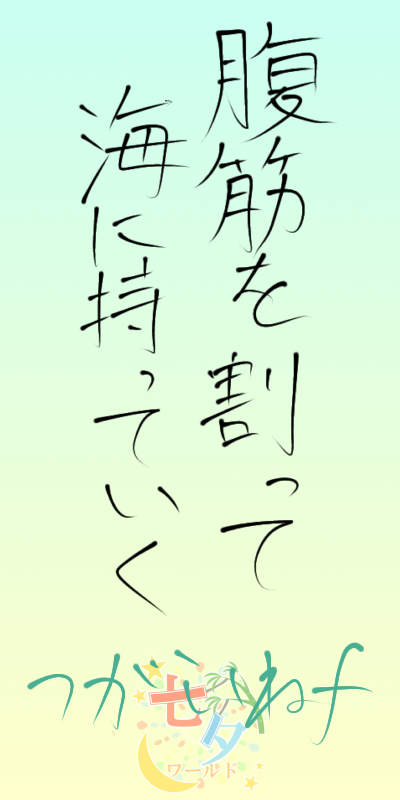 腹筋を割って
海に持っていく
つがいねf
七夕
ワールド